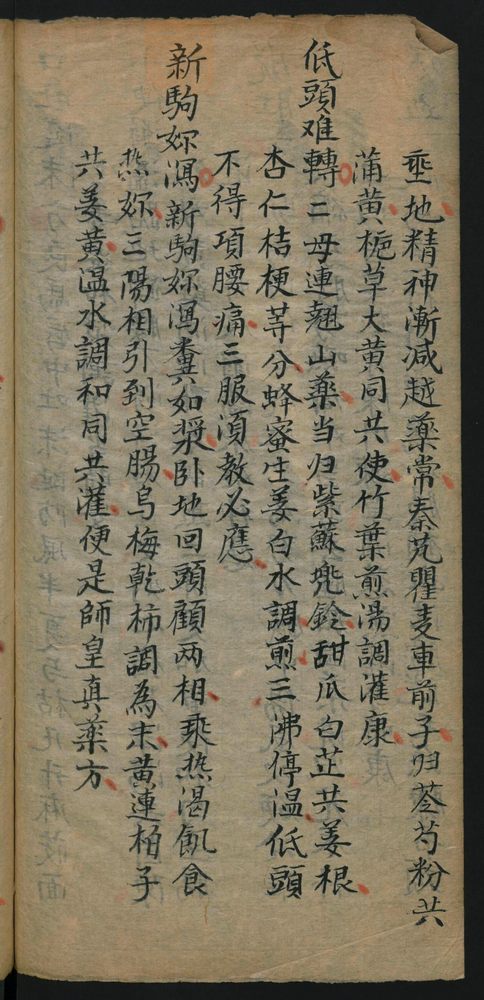 垂地精神漸減越藥常秦艽瞿麦車前子归苓芍粉共
蒲黄梔草大黄同共使竹葉煎湯調灌康
低頭难轉二母連翹山藥当归紫蘇兠鈴甜瓜白芷共姜根
杏仁桔梗等分蜂蜜生姜白水調煎三沸停温低頭
不得項腰痛三服湏教必應
新駒妳瀉新駒妳瀉糞如漿卧地回頭顧两相乘热渴飢食
热妳三陽相引到空腸烏梅乾柿調為末黄連柏子
共姜黄温水調和同共灌便是師皇真藥方